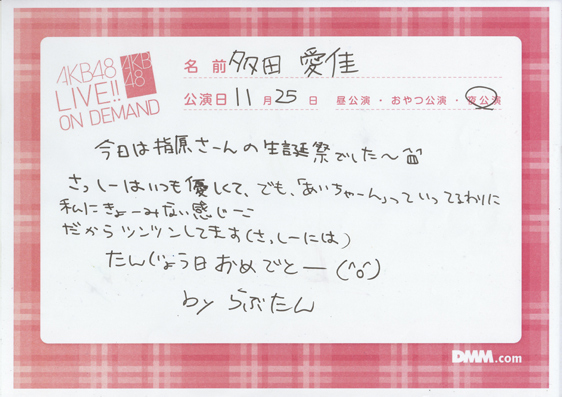 AKB48
LIVE!!
ON DEMAND
AKB
48
名前 多田 愛佳
公演日 11月25日 昼公演・おやつ公演・夜公演
今日は指原さーんの生誕祭でした〜
さっしーはいつも優しくて、でも、「あいちゃーん」っていってるわりに
私にきょーみない感じー
だからツンツンしてます(さっしーには)
たんじょう日おめでとー(^o^)
by らぶたん
DMM.com